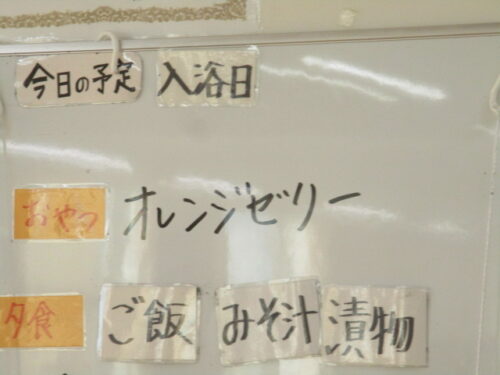 今日の予定 入浴日
おやつ オレンジゼリー
夕食 ご飯 みそ汁 漬物